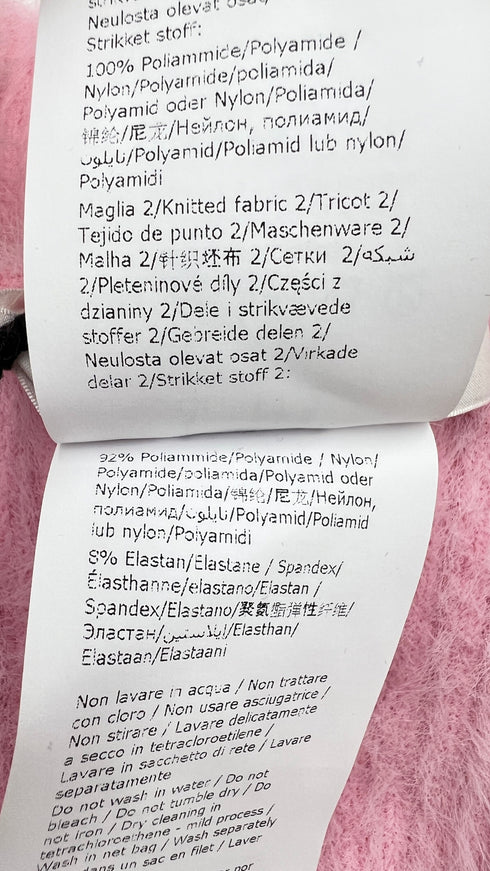 Neulosta olevat osat/
Strikket stoff:
100% Poliammide/Polyamide /
Nylon/Polyamide/poliamida/
Polyamid oder Nylon/Poliamida/
锦纶/尼龙/Нейлон, полиамид/
نايلون/Polyamid/Poliamid lub nylon/
Polyamidi
Maglia 2/Knitted fabric 2/Tricot 2/
Tejido de punto 2/Maschenware 2/
Malha 2/针织坯布 2/Сетки 2/شبكه
2/Pleteninové díly 2/Części z
dzianiny 2/Dele i strikvævede
stoffer 2/Gebreide delen 2/
Neulosta olevat osat 2/Virkade
delar 2/Strikket stoff 2:
92% Poliammide/Polyamide / Nylon/
Polyamide/poliamida/Polyamid oder
Nylon/Poliamida/锦纶/尼龙/Нейлон,
полиамид/نايلون/Polyamid/Poliamid
lub nylon/Polyamidi
8% Elastan/Elastane / Spandex/
Élasthanne/elastano/Elastan /
Spandex/Elastano/聚氨酯弹性纤维/
Эластан/إيلاستين/Elasthan/
Elastaan/Elastaani
Non lavare in acqua / Non trattare
con cloro / Non usare asciugatrice /
Non stirare / Lavare delicatamente
a secco in tetracloroetilene /
Lavare in sacchetto di rete / Lavare
separatamente
Do not wash in water / Do not
bleach / Do not tumble dry / Do
not iron / Dry cleaning in
tetrachloroethene - mild process /
Wash in net bag / Wash separately
dans un sac en filet / Laver